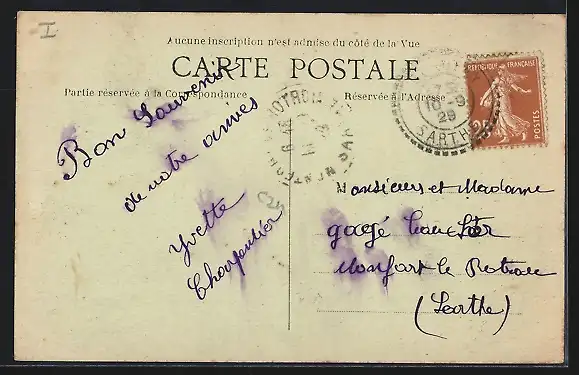 I
Aucune inscription n'est admise du côté de la Vue
CARTE POSTALE
Partie réservée à la Correspondance
Réservée à l'Adresse
REPUBLIQUE FRANÇAISE
POSTES
10-9
29
SARTHE
Bon Souvenir
de notre
Yvette
Charpentier
Monsieurs et Madame
gagé
Monfort le Rotrou
(Sarthe)